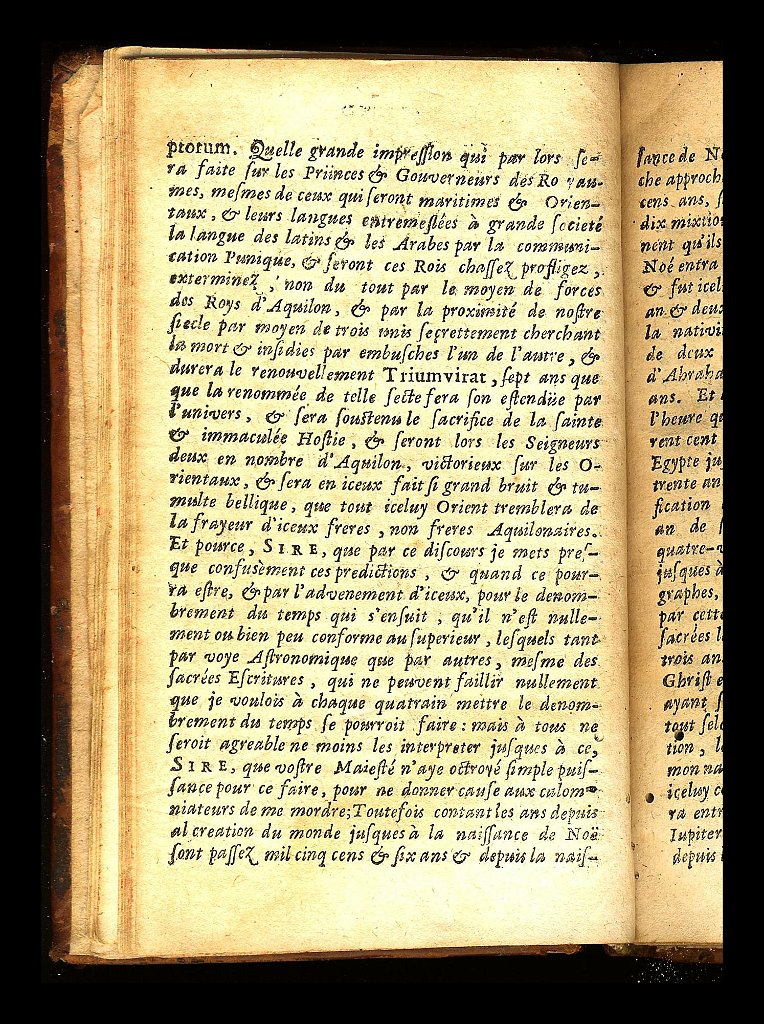 ptorum. Quelle grande impreſſion qui par lors ſe-
ra faite ſur les Priinces & Gouverneurs des Ro yau-
mes, meſmes de ceux qui ſeront maritimes & Orien-
taux, & leurs langues entremeſlées à grande ſocieté
la langue des latins & les Arabes par la communi-
cation Punique, & ſeront ces Rois chaſſez profligez,
exterminez, non du tout par le moyen de forces
des Roys d'Aquilon, & par la proximité de noſtre
ſiecle par moyen de trois unis ſecrettement cherchant
la mort & inſidies par embuſches l'un de l'autre, &
durera le renouvellement Triumvirat, ſept ans que
que la renommée de telle ſecte fera ſon eſtendüe par
l'univers, & ſera ſouſtenu le ſacrifice de la ſainte
& immaculée Hoſtie, & ſeront lors les Seigneurs
deux en nombre d'Aquilon, victorieux ſur les O-
rientaux, & ſera en iceux fait ſi grand bruit & tu-
multe bellique, que tout iceluy Orient tremblera de
la frayeur d'iceux freres, non freres Aquilonaires.
Et pource, SIRE, que par ce diſcours je mets preſ-
que confuſement ces predictions, & quand ce pour-
ra eſtre, & par l'advenement d'iceux, pour le denom-
brement du temps qui s'enſuit, qu'il n'eſt nulle-
ment ou bien peu conforme au ſuperieur, leſquels tant
par voye Aſtronomique que par autres, meſme des
ſacrées Eſcritures, qui ne peuvent faillir nullement
que je voulois à chaque quatrain mettre le denom-
brement du temps ſe pourroit faire: mais à tous ne
ſeroit agreable ne moins les interpreter juſques à ce,
SIRE, que voſtre Maieſté n'aye octroyé ſimple puiſ-
ſance pour ce faire, pour ne donner cauſe aux calom-
niateurs de me mordre; Toutefois contant les ans depuis
al creation du monde juſques à la naiſſance de Noë
ſont paſſez mil cinq cens & ſix ans & depuis la naiſ-
ſance de
che approch
cens ans,
dix mixtio
nent qu'ils
Noé entra
& fut icel
an & deux
la nativi
de deux
d'Abraha
ans. Et
l'heure
rent cent
Egypte
trente an
fication
an de
quatre-
juſques à
graphes,
par cette
ſacrées
trois an
Ghriſt
ayant
tout ſel
tion,
mon
iceluy
ra entr
Iupiter
depuis